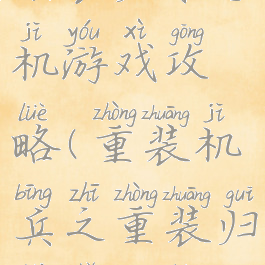 jī yóu xì gōng
机游戏攻
lüè zhòng zhuāng jī
略(重装机
bīng zhī zhòng zhuāng guī
兵之重装归